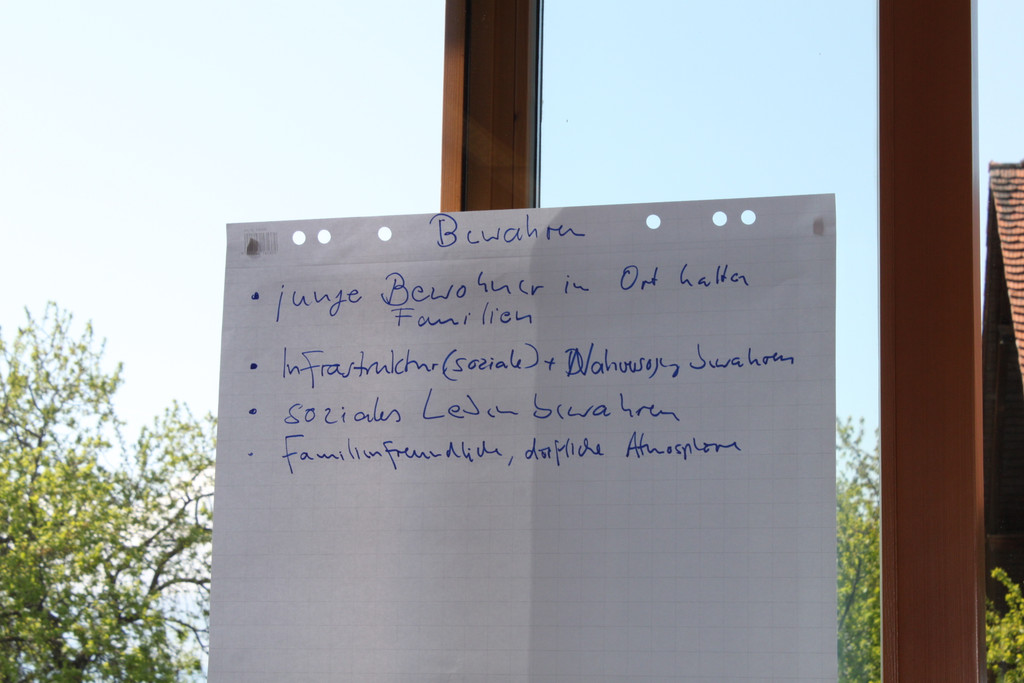 Bewahren
• junge Bewohner in Ort halten
Familien
• Infrastruktur (soziale) + Nahversorg bewahren
• soziales Leben bewahren
- Familienfreundliche, dörfliche Atmosphäre